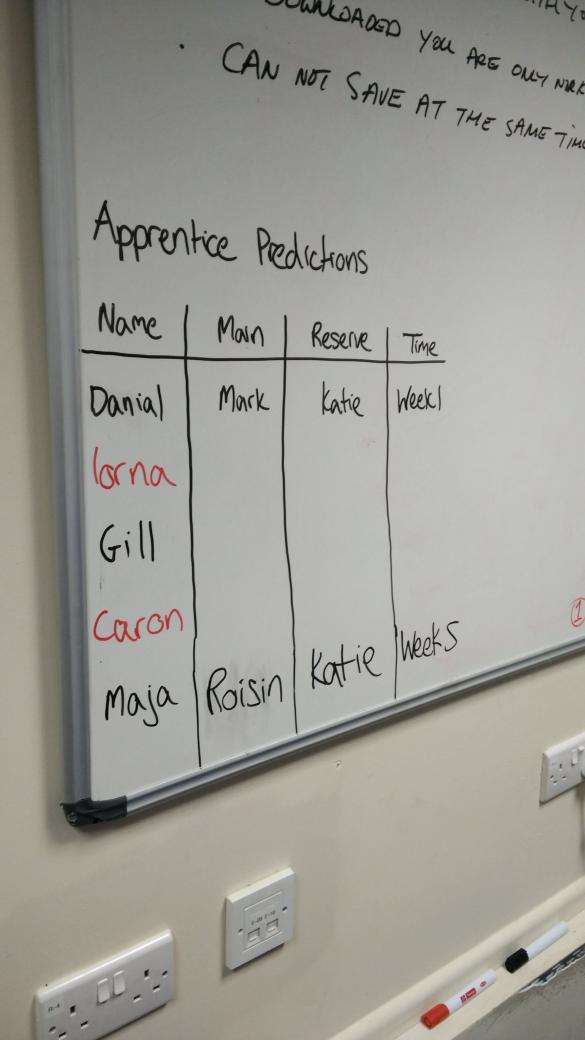 DOWNLOADED YOU ARE ONLY
· CAN NOT SAVE AT THE SAME TIME
Apprentice Predictions
Name Main Reserve Time
Danial Mark Katie Week1
lorna
Gill
Caron
Maja Roisin Katie Week5
1